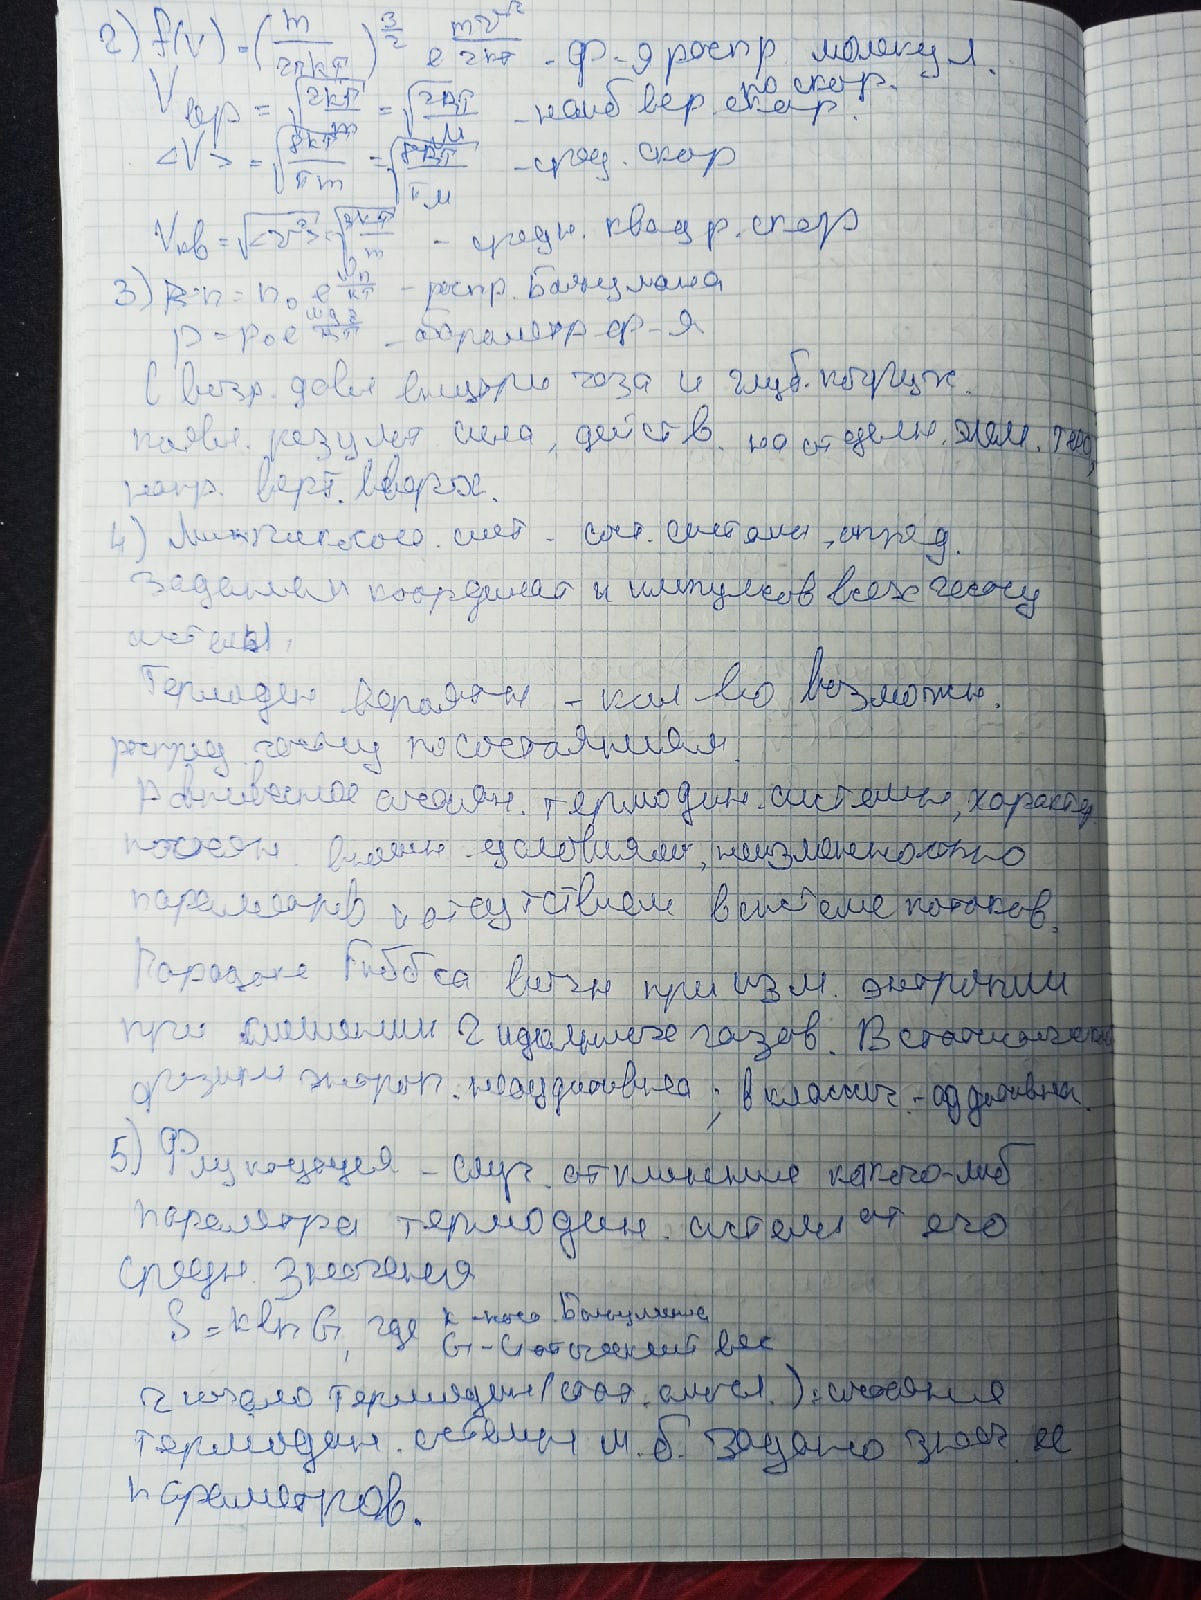 2) f(v) = (m / 2πkT)^3/2 e^mv²/2kT - ф-я распр молекул.
по скор.
Vвер = √2kT/m = √2RT/M - наиб вер. скор.
<V> = √8kT/πm = √8RT/πM - сред. скор
Vкв = √<v²> = √3kT/m - средн. квадр. скор
3) n = n₀ e - распр. Больцмана
p = p₀ e - барометр ф-я
С возр. давл внутри газа и глуб. погруж.
появл. результ сила, действ. на отделн. элем. тела,
напр. верт. вверх.
4) сост. - сост. системы, опред.
заданием координат и импульсов всех частиц
системы.
Термодин вероятн - кол во возможн.
распред. частиц по состояниям.
Равновесное состоян. термодин. системы, характер.
постоян. внешн. условиями, неизменностью
параметров и отсутствием в системе потоков.
Парадокс Гиббса возн при изм. энтропии
при смешении 2 идеальных газов. В статистической
физике энтроп. неаддитивна; в классич. - аддитивна.
5) Флуктуация - случ. отклонение какого-либ
параметра термодин. системы от его
средн. значения
S = k ln G, где k - пост. Больцмана
G - статистич вес
2 начало термодин (стат. смысл.): состояние
термодин. системы м.б. задано знач. ее
параметров.